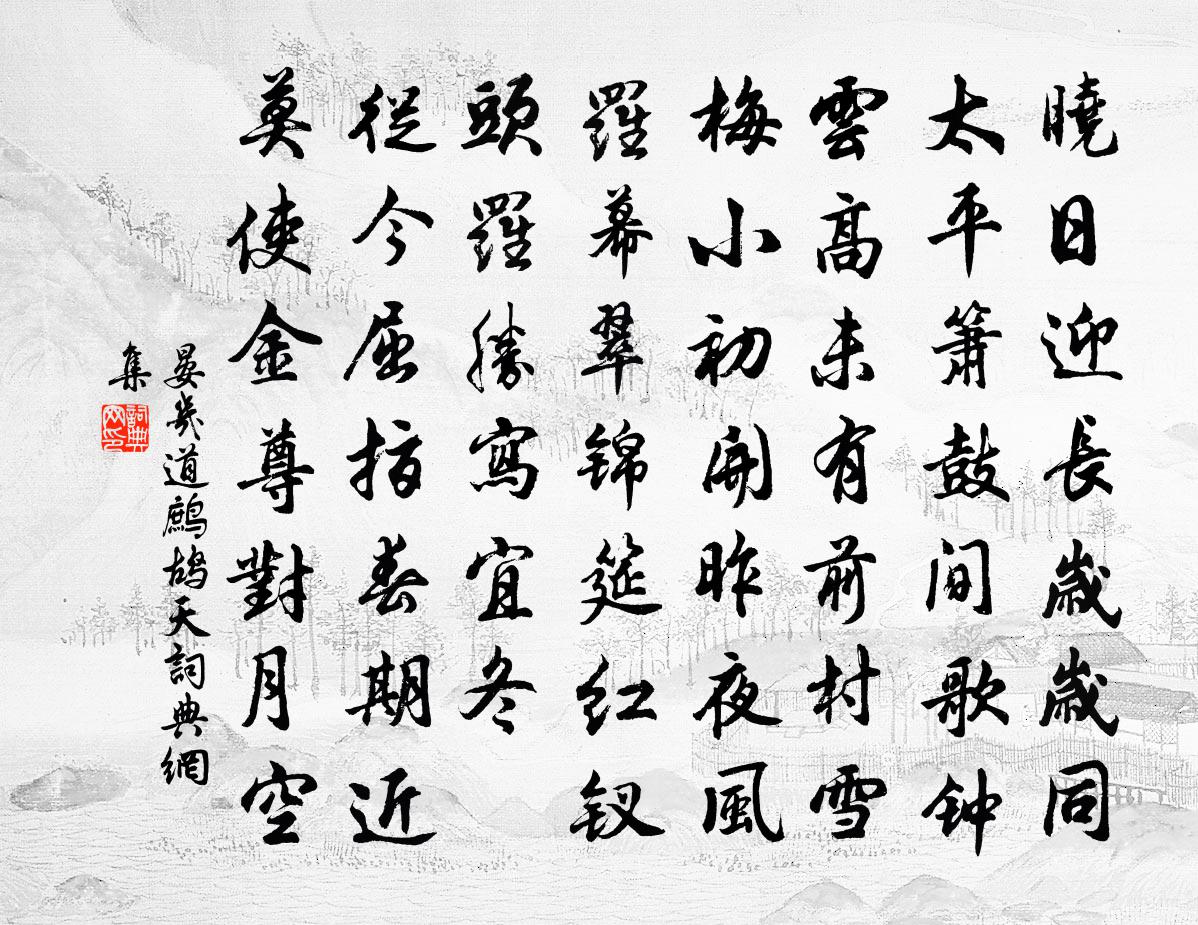 曉日迎長歲歲同
太平簫鼓間歌钟
雲高未有前村雪
梅小初開昨夜風
羅幕翠锦筵红钗
頭羅勝寫宜冬
從今屈指春期近
莫使金尊對月空
晏幾道鷓鴣天詞典網
集
詞典
网印